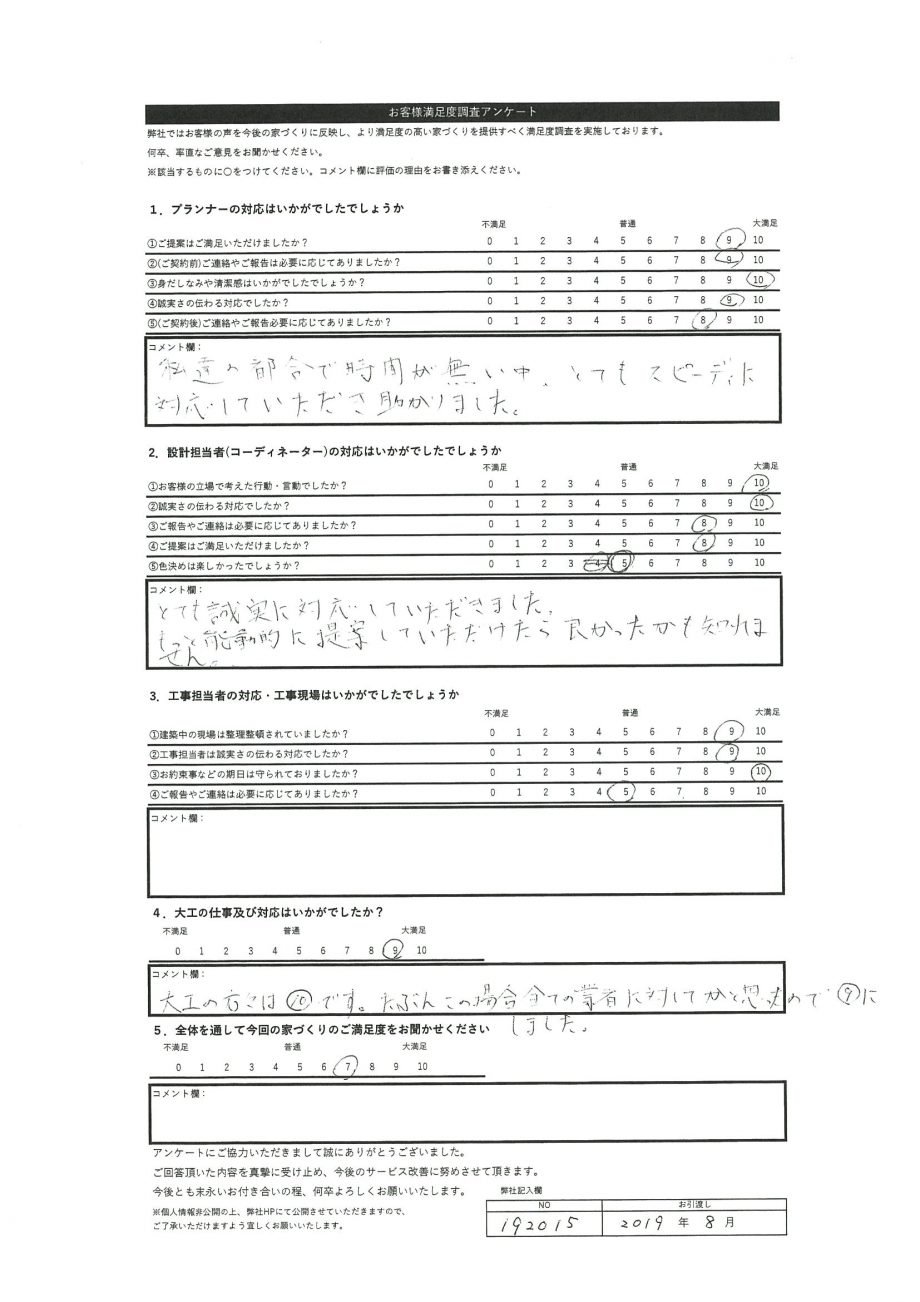 お客様満足度調査アンケート
弊社ではお客様の声を今後の家づくりに反映し、より満足度の高い家づくりを提供すべく満足度調査を実施しております。
何卒、率直なご意見をお聞かせください。
※該当するものに〇をつけてください。コメント欄に評価の理由をお書き添えください。
1．プランナーの対応はいかがでしたでしょうか
不満足 普通 大満足
①ご提案はご満足いただけましたか？ 0 1 2 3 4 5 6 7 8 9 10
②(ご契約前)ご連絡やご報告は必要に応じてありましたか？ 0 1 2 3 4 5 6 7 8 9 10
③身だしなみや清潔感はいかがでしたでしょうか？ 0 1 2 3 4 5 6 7 8 9 10
④誠実さの伝わる対応でしたか？ 0 1 2 3 4 5 6 7 8 9 10
⑤(ご契約後)ご連絡やご報告必要に応じてありましたか？ 0 1 2 3 4 5 6 7 8 9 10
コメント欄：
私達の都合で時間が無い中、とてもスピーディに
対応していただき助かりました。
2．設計担当者(コーディネーター)の対応はいかがでしたでしょうか
不満足 普通 大満足
①お客様の立場で考えた行動・言動でしたか？ 0 1 2 3 4 5 6 7 8 9 10
②誠実さの伝わる対応でしたか？ 0 1 2 3 4 5 6 7 8 9 10
③ご報告やご連絡は必要に応じてありましたか？ 0 1 2 3 4 5 6 7 8 9 10
④ご提案はご満足いただけましたか？ 0 1 2 3 4 5 6 7 8 9 10
⑤色決めは楽しかったでしょうか？ 0 1 2 3 4 5 6 7 8 9 10
コメント欄：
とても誠実に対応していただきました。
もっと能動的に提案していただけたら良かったかも知れま
せん。
3．工事担当者の対応・工事現場はいかがでしたでしょうか
不満足 普通 大満足
①建築中の現場は整理整頓されていましたか？ 0 1 2 3 4 5 6 7 8 9 10
②工事担当者は誠実さの伝わる対応でしたか？ 0 1 2 3 4 5 6 7 8 9 10
③お約束事などの期日は守られておりましたか？ 0 1 2 3 4 5 6 7 8 9 10
④ご報告やご連絡は必要に応じてありましたか？ 0 1 2 3 4 5 6 7 8 9 10
コメント欄：
4．大工の仕事及び対応はいかがでしたか？
不満足 普通 大満足
0 1 2 3 4 5 6 7 8 9 10
コメント欄：
大工の方々は⑩です。たぶんこの場合全ての業者に対してかと思ったので⑨に
しました。
5．全体を通して今回の家づくりのご満足度をお聞かせください
不満足 普通 大満足
0 1 2 3 4 5 6 7 8 9 10
コメント欄：
アンケートにご協力いただきまして誠にありがとうございました。
ご回答頂いた内容を真摯に受け止め、今後のサービス改善に努めさせて頂きます。
今後とも末永いお付き合いの程、何卒よろしくお願いいたします。 弊社記入欄
※個人情報非公開の上、弊社HPにて公開させていただきますので、
ご了承いただけますよう宜しくお願いいたします。
NO お引渡し
192015 2019 年 8 月